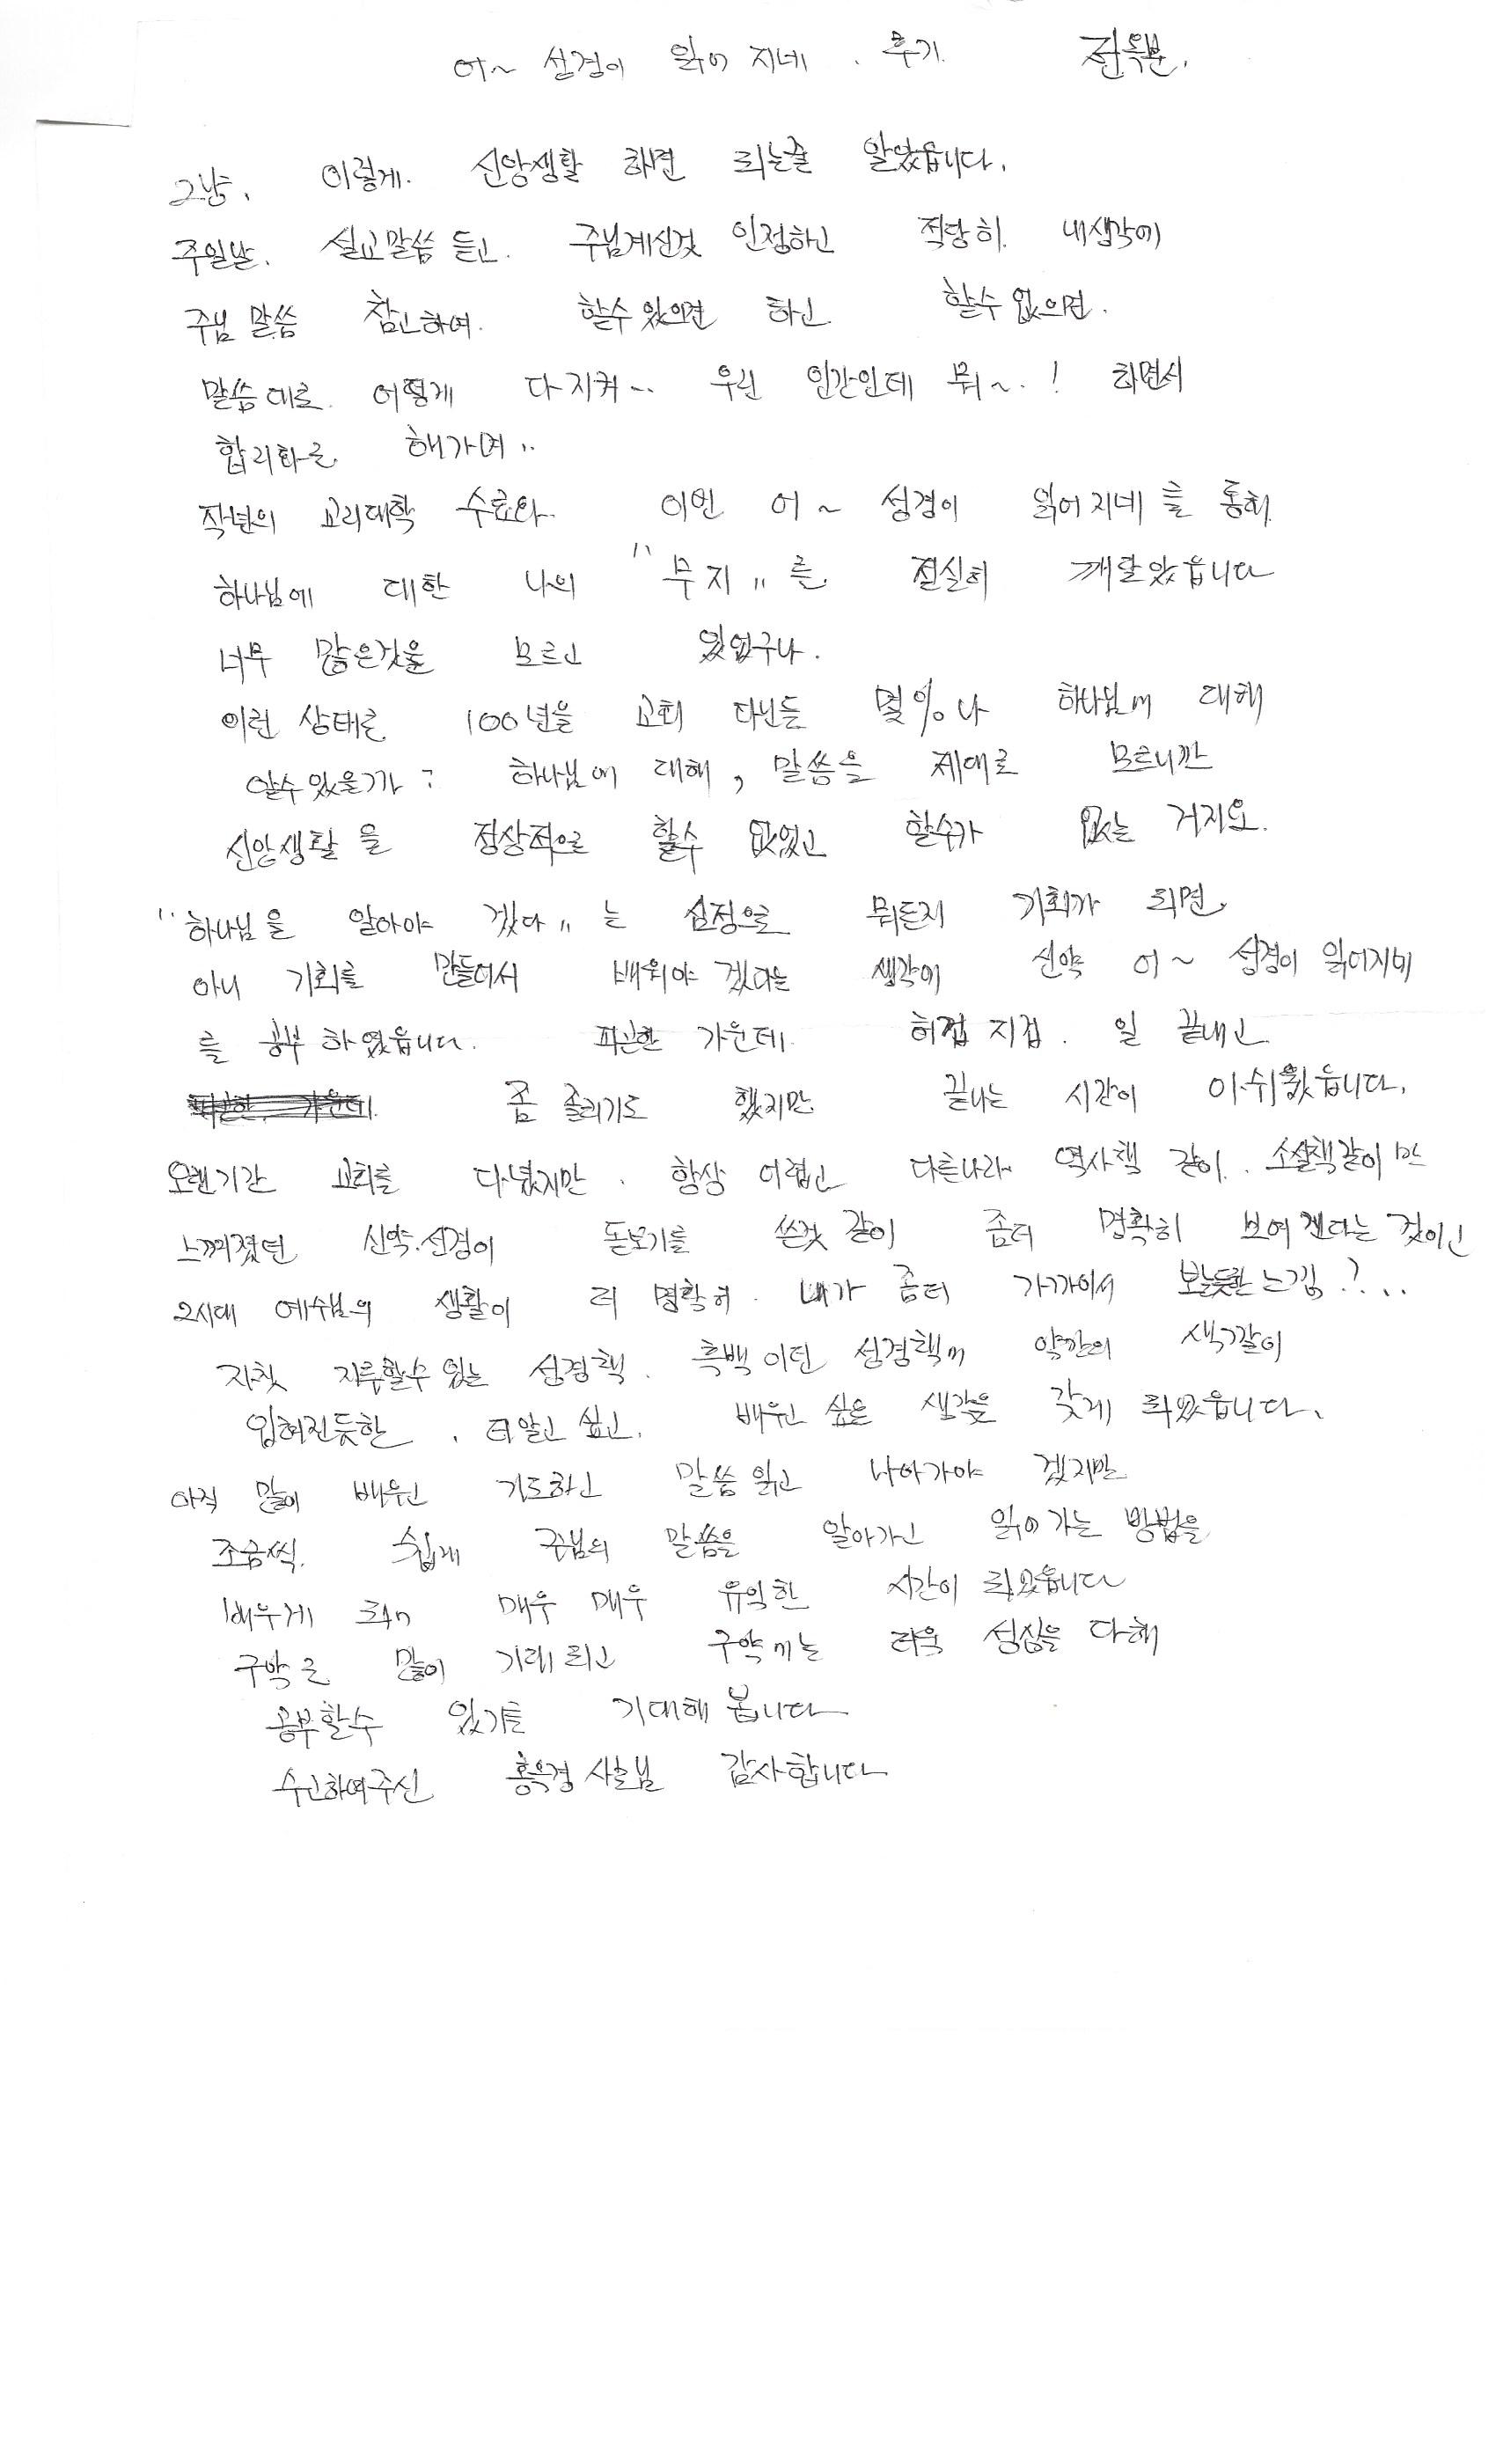 어~ 성경이 읽어 지네. 후기. 전옥분.
그냥, 이렇게. 신앙생활 하면 되는줄 알았읍니다.
주일날. 설교말씀 듣고. 주님계신것 인정하고 적당히. 내생각에
주님 말씀 참고하여. 할수있으면 하고 할수 없으면.
말씀대로. 어떻게 다지켜~.. 우린 인간인데 뭐~.! 하면서
합리화를 해가며..
작년의 교리대학 수료와 이번 어~ 성경이 읽어지네를 통해.
하나님에 대한 나의 "무지"를 절실히 깨달았읍니다
너무 많은것을 모르고 있었구나.
이런 상태로 100년을 교회 다닌들 몇%나 하나님에 대해
알수있을가? 하나님에 대해, 말씀을 제대로 모르니깐
신앙생활을 정상적으로 할수 없었고 할수가 없는 거지요.
"하나님을 알아야 겠다"는 심정으로 뭐든지 기회가 되면,
아니 기회를 만들어서 배워야겠다는 생각에 신약 어~ 성경이 읽어지네
를 공부하였읍니다. 피곤한 가운데. 허겁지겁. 일 끝내고
좀 졸리기도 했지만 끝나는 시간이 아쉬웠읍니다.
오랜기간 교회를 다녔지만. 항상 어렵고 다른나라 역사책 같이. 소설책같이만
느껴졌던 신약.성경이 돋보기를 쓴것 같이 좀더 명확히 보여 진다는 것이고
2시대 예수님의 생활이 더 명확히. 내가 좀더 가까이서 본듯한 느낌?...
자칫 지루할수 있는 성경책. 흑백이던 성경책에 약간의 색갈이
입혀진듯한. 더알고 싶고. 배우고 싶은 생각을 갖게 되었읍니다.
아직 많이 배우고 기도하고 말씀 읽고 나아가야 겠지만
조금씩. 쉽게 주님의 말씀을 알아가고 읽어 가는 방법을
배우게 되어 매우 매우 유익한 시간이 되었읍니다
구약도 많이 기대되고 구약에는 더욱 성심을 다해
공부할수 있기를 기대해 봅니다
수고하여주신 홍옥경 사모님 감사합니다